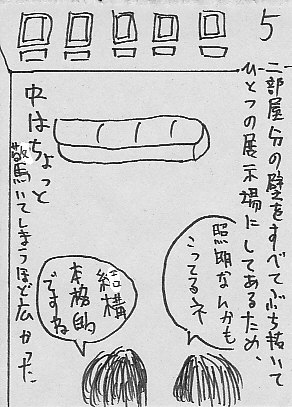 5
二部屋分の壁をすべてぶち抜いて
ひとつの展示場にしてあるため、
中はちょっと
驚いてしまうほど広かった
照明なんかも
こってるネ
結構
本格的
ですね